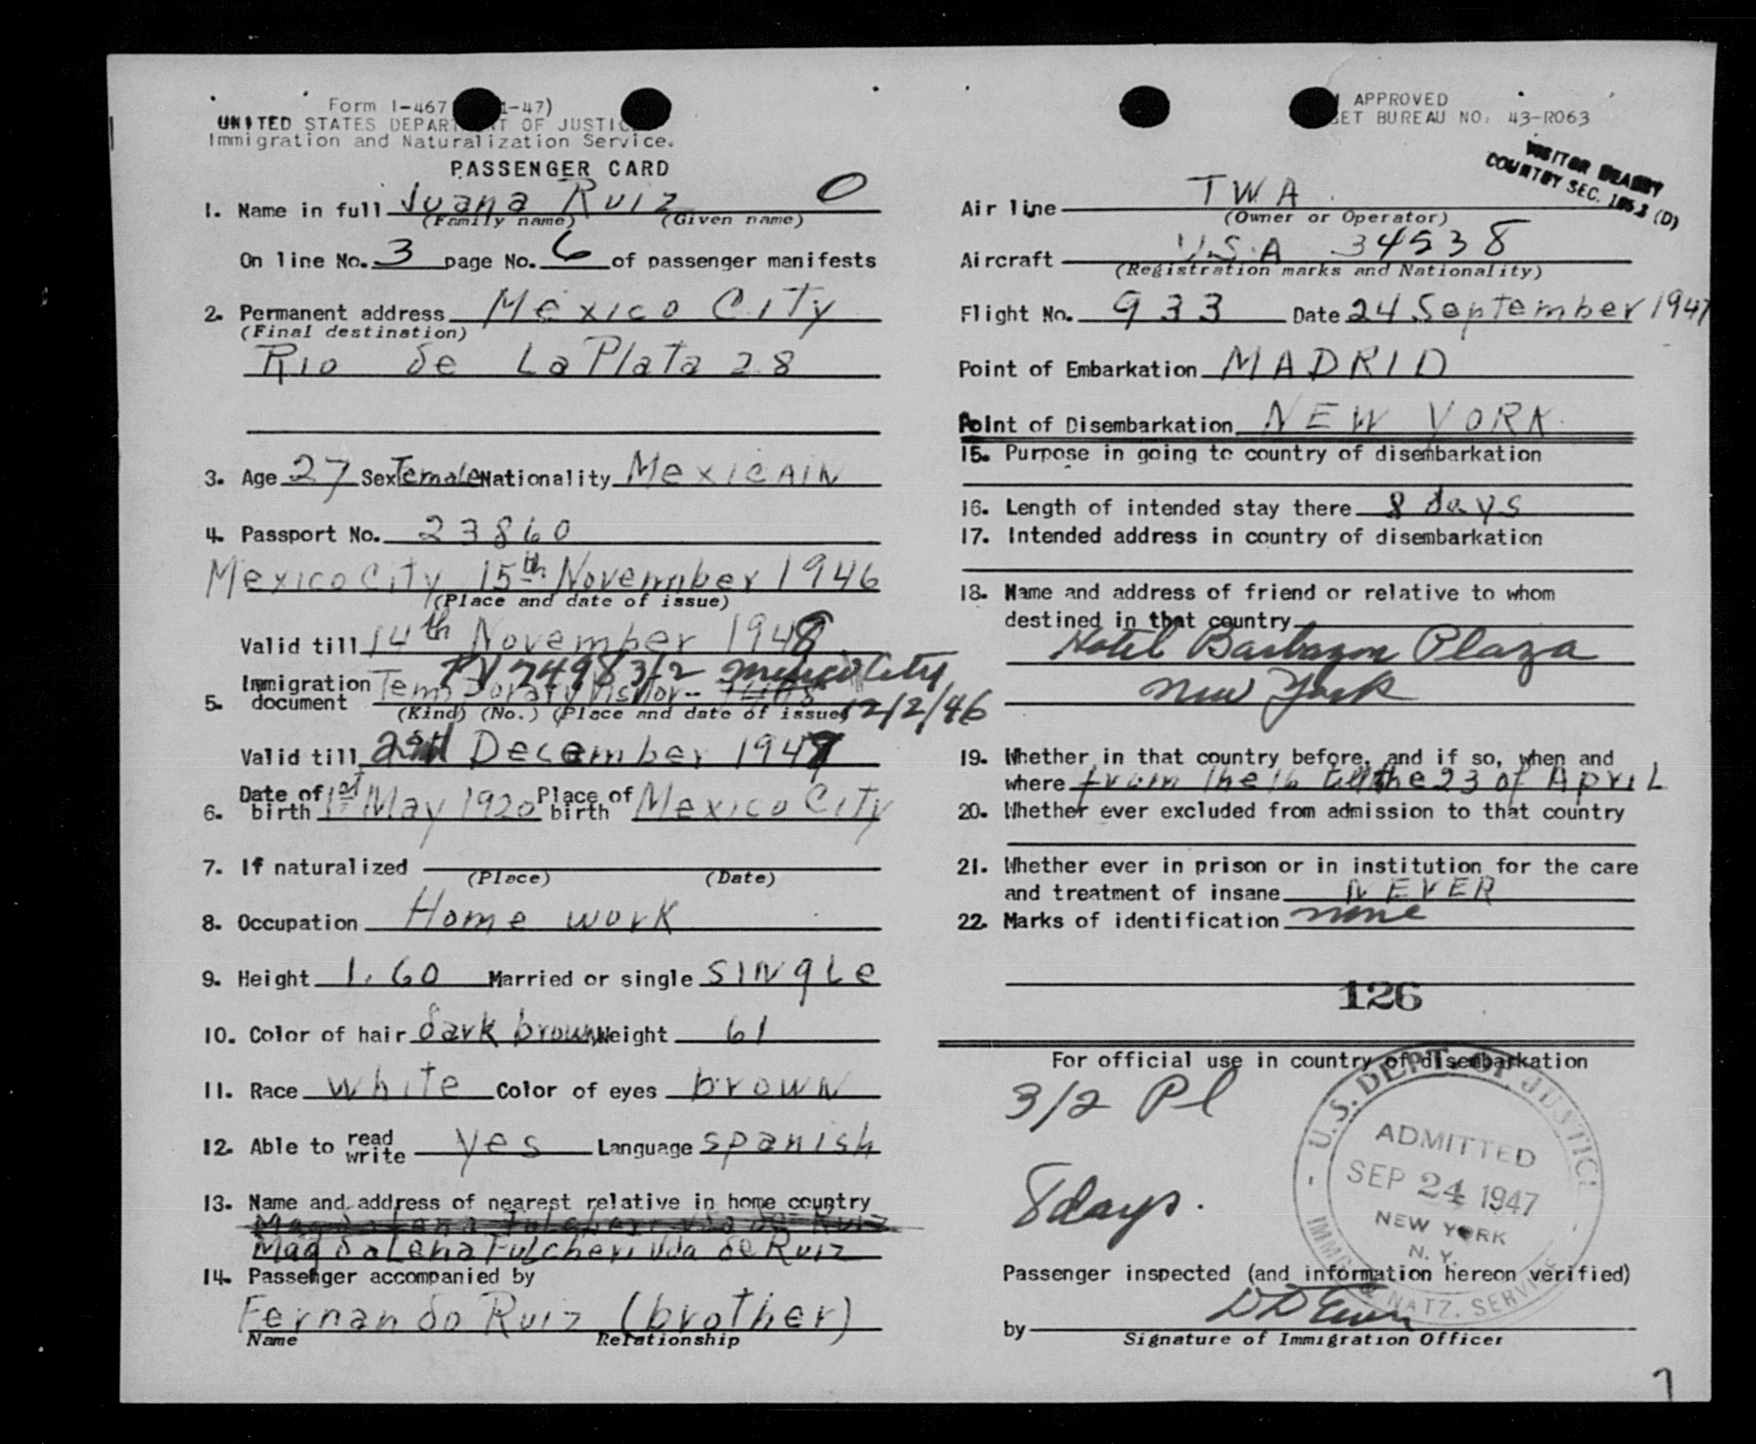 Form I-467 1-47)
UNITED STATES DEPARTMENT OF JUSTICE
Immigration and Naturalization Service.
PASSENGER CARD
1. Name in full Juana Ruiz O
(Family name) (Given name)
On line No. 3 page No. 6 of passenger manifests
2. Permanent address Mexico City
(Final destination)
Rio de La Plata 28
3. Age 27 Sex Female Nationality MexicAIN
4. Passport No. 23860
Mexico City 15th November 1946
(Place and date of issue)
Valid till 14th November 1948
RV 7498 3/2 Mexico City
5. Immigration document Temporary Visitor 12/2/46
(Kind) (No.) (Place and date of issue)
Valid till December 1947
6. Date of birth 1st May 1920 Place of birth Mexico City
7. If naturalized
(Place) (Date)
8. Occupation Home work
9. Height 1.60 Married or single single
10. Color of hair dark brown Weight 61
11. Race white Color of eyes brown
12. Able to read write yes Language spanish
13. Name and address of nearest relative in home country
Magdalena Fulcheri vda de Ruiz
Magdalena Fulcheri vda de Ruiz
14. Passenger accompanied by
Fernando Ruiz (brother)
Name Relationship
APPROVED
ET BUREAU NO. 43-R063
VISITOR
COUNTRY SEC. (D)
Air line TWA
(Owner or Operator)
Aircraft U.S.A 34538
(Registration marks and Nationality)
Flight No. 933 Date 24 September 1947
Point of Embarkation MADRID
Point of Disembarkation NEW YORK
15. Purpose in going to country of disembarkation
16. Length of intended stay there 8 days
17. Intended address in country of disembarkation
18. Name and address of friend or relative to whom
destined in that country
Hotel Barbazon Plaza
New York
19. Whether in that country before, and if so, when and
where from the 16 till the 23 of April
20. Whether ever excluded from admission to that country
21. Whether ever in prison or in institution for the care
and treatment of insane NEVER
22. Marks of identification none
126
For official use in country of disembarkation
3/2 Pl
8 days.
U.S. DEPT. OF JUSTICE
ADMITTED
SEP 24 1947
NEW YORK
N. Y.
IMMIG & NATZ. SERVICE
Passenger inspected (and information hereon verified)
by
Signature of Immigration Officer
7